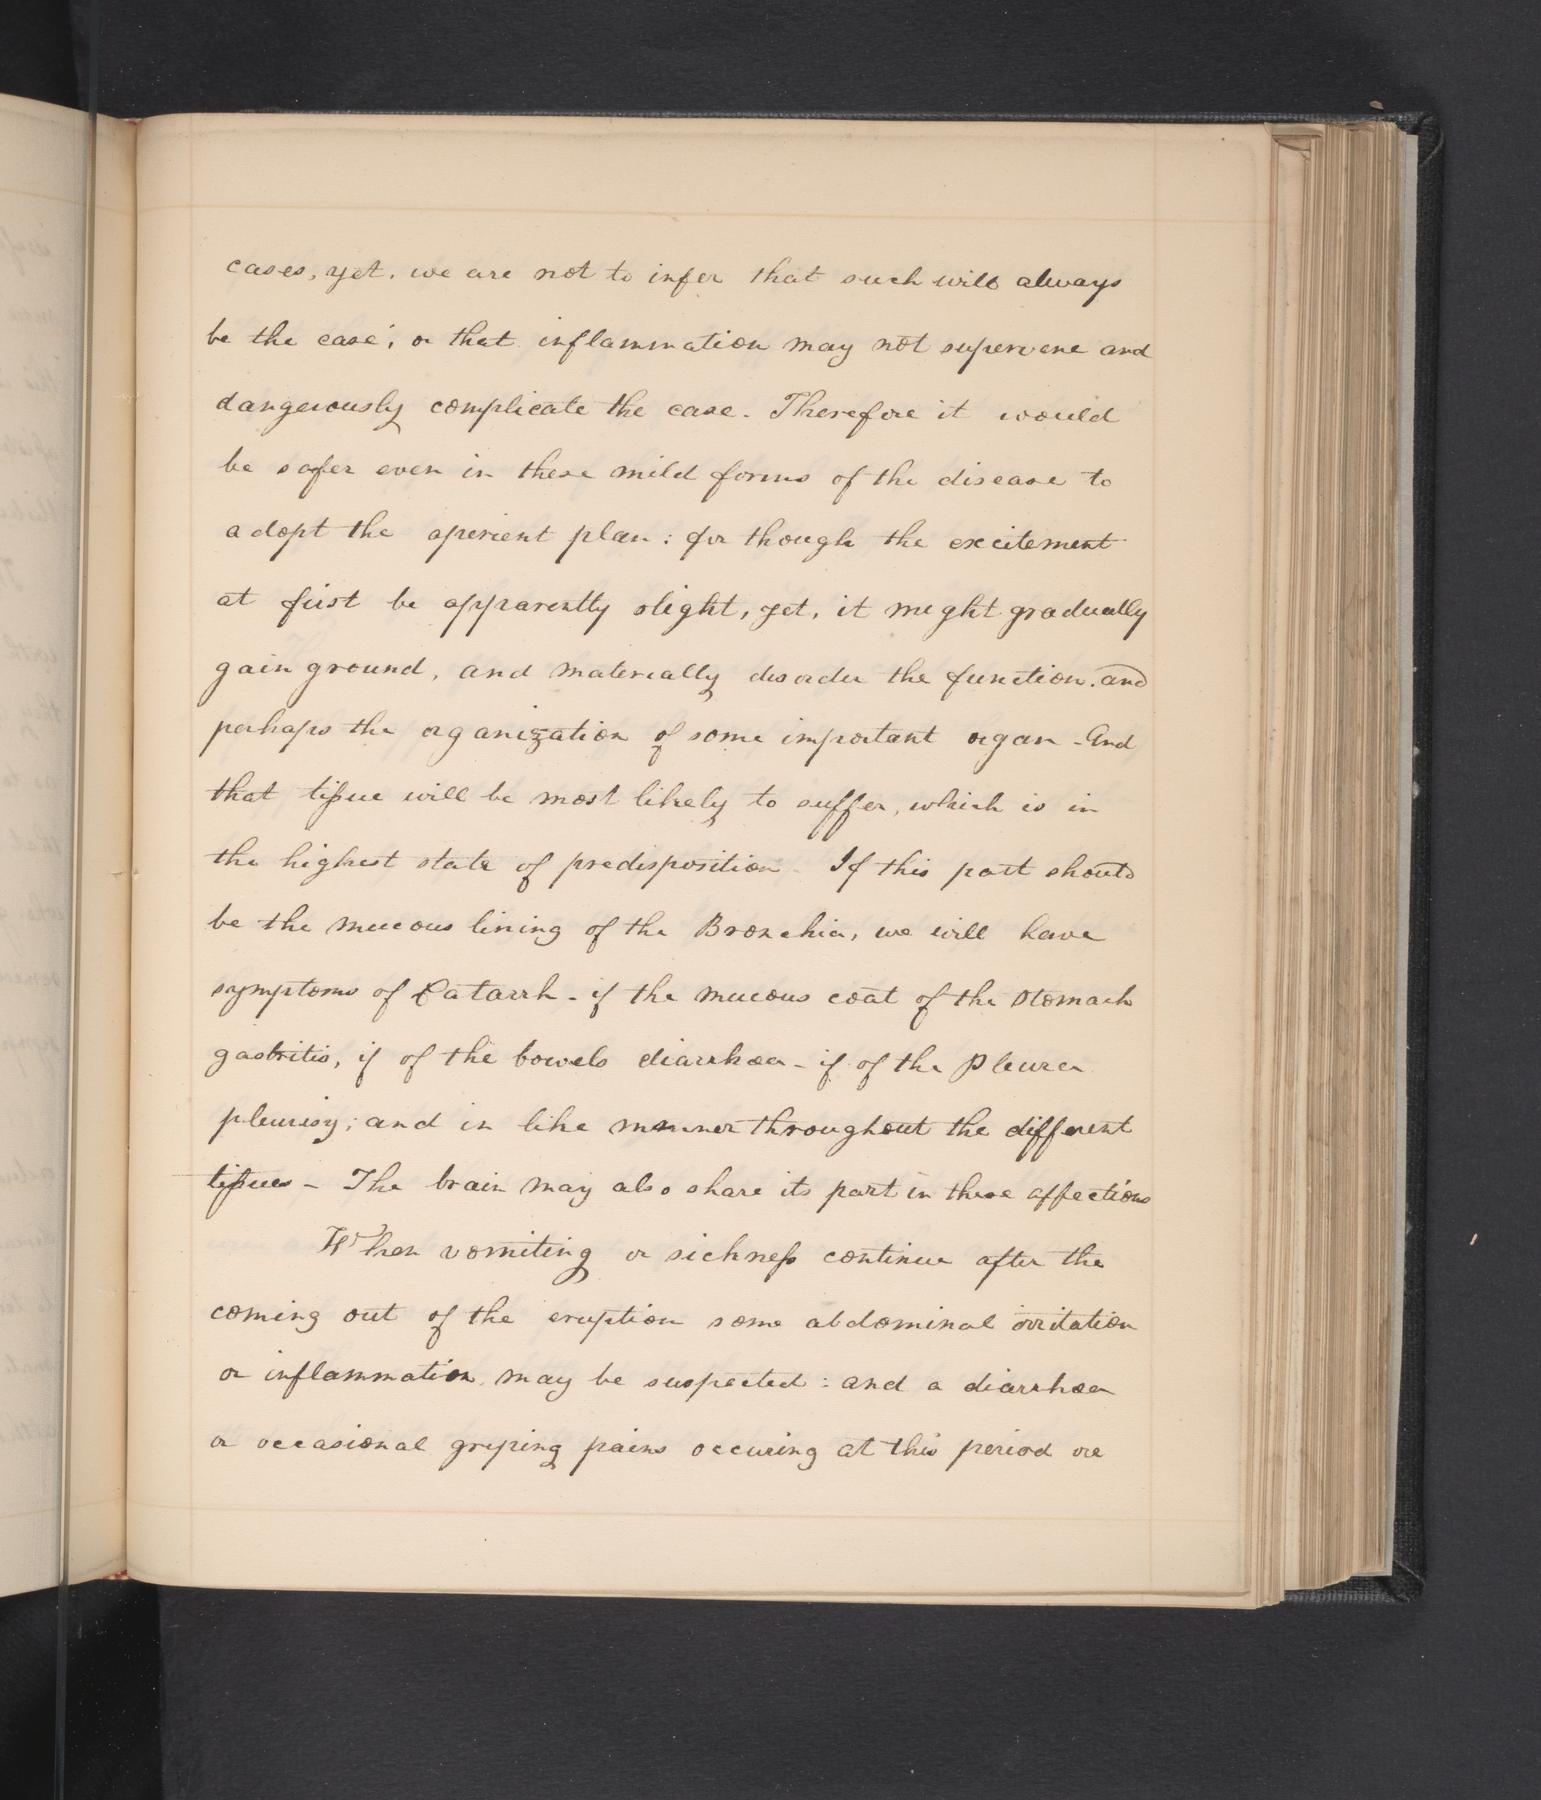 cases, yet, we are not to infer that such will always
be the case; or that inflammation may not supervene and
dangerously complicate the case. Therefore it would
be safer even in these mild forms of the disease to
adopt the aperient plan: for though the excitement
at first be apparently slight, yet, it might gradually
gain ground, and materially disorder the function. and
perhaps the organization of some important organ - And
that tissue will be most likely to suffer, which is in
the highest state of predisposition - If this part should
be the mucous lining of the Bronchia, we will have
symptoms of Catarrh - if the mucous coat of the stomach
gastritis, if of the bowels diarrhœa - if of the Pleura
pleurisy; and in like manner throughout the different
tissues - The brain may also share its part in these affections
When vomiting or sickness continue after the
coming out of the eruption some abdominal irritation
or inflammation may be suspected: and a diarrhœa
or occasional griping pains occuring at this period are